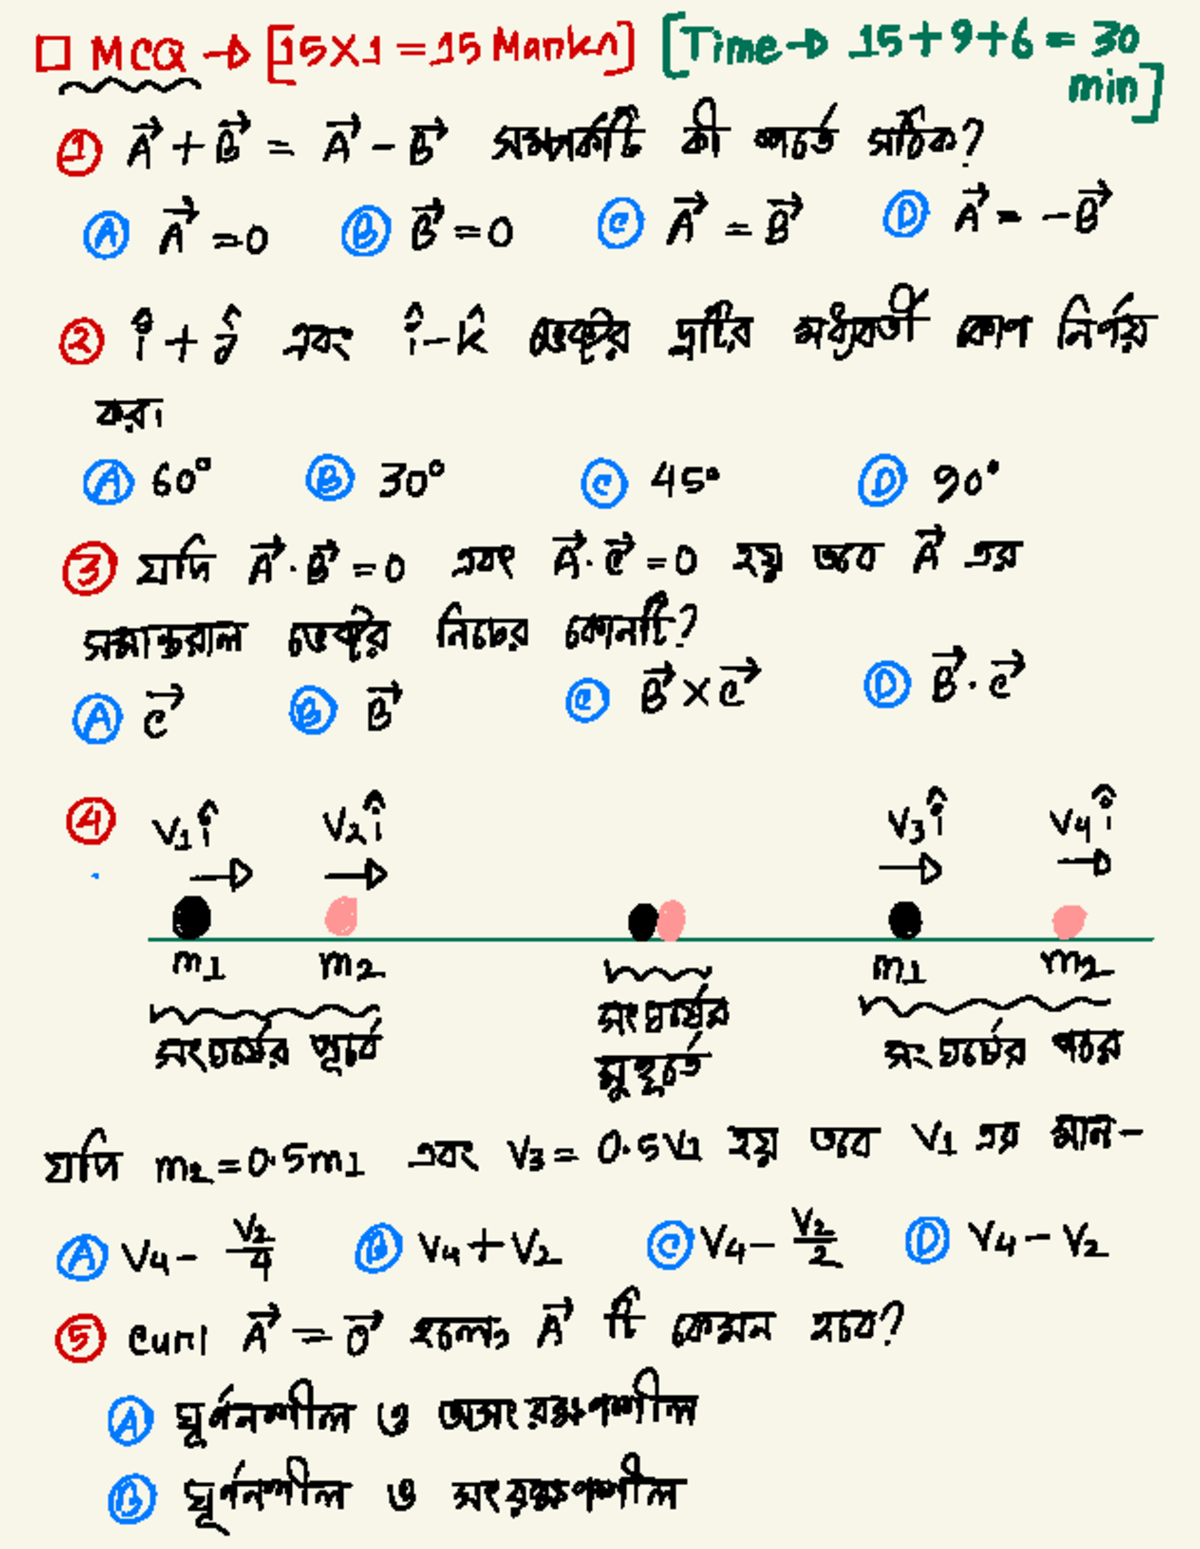 □ MCQ → [15×1=15 Marks] [Time→ 15+9+6 = 30 min]
① A⃗ + B⃗ = A⃗ − B⃗ সম্পর্কটি কী শর্তে সঠিক?
Ⓐ A⃗ = 0 Ⓑ B⃗ = 0 Ⓒ A⃗ = B⃗ Ⓓ A⃗ = −B⃗
② î + ĵ এবং î − k̂ ভেক্টর দুটির মধ্যবর্তী কোণ নির্ণয়
কর।
Ⓐ 60° Ⓑ 30° Ⓒ 45° Ⓓ 90°
③ যদি A⃗·B⃗ = 0 এবং A⃗·C⃗ = 0 হয় তবে A⃗ এর
সমান্তরাল ভেক্টর নিচের কোনটি?
Ⓐ C⃗ Ⓑ B⃗ Ⓒ B⃗ × C⃗ Ⓓ B⃗·C⃗
④ v₁î v₂î v₃î v₄î
m₁ m₂ m₁ m₂
সংঘর্ষের পূর্বে সংঘর্ষের মুহূর্তে সংঘর্ষের পরে
যদি m₂ = 0.5m₁ এবং v₃ = 0.5v₁ হয় তবে v₁ এর মান−
Ⓐ v₄ − v₂/4 Ⓑ v₄ + v₂ Ⓒ v₄ − v₂/2 Ⓓ v₄ − v₂
⑤ curl A⃗ = 0⃗ হলে, A⃗ টি কেমন হবে?
Ⓐ ঘূর্ণনশীল ও অসংরক্ষণশীল
Ⓑ ঘূর্ণনশীল ও সংরক্ষণশীল